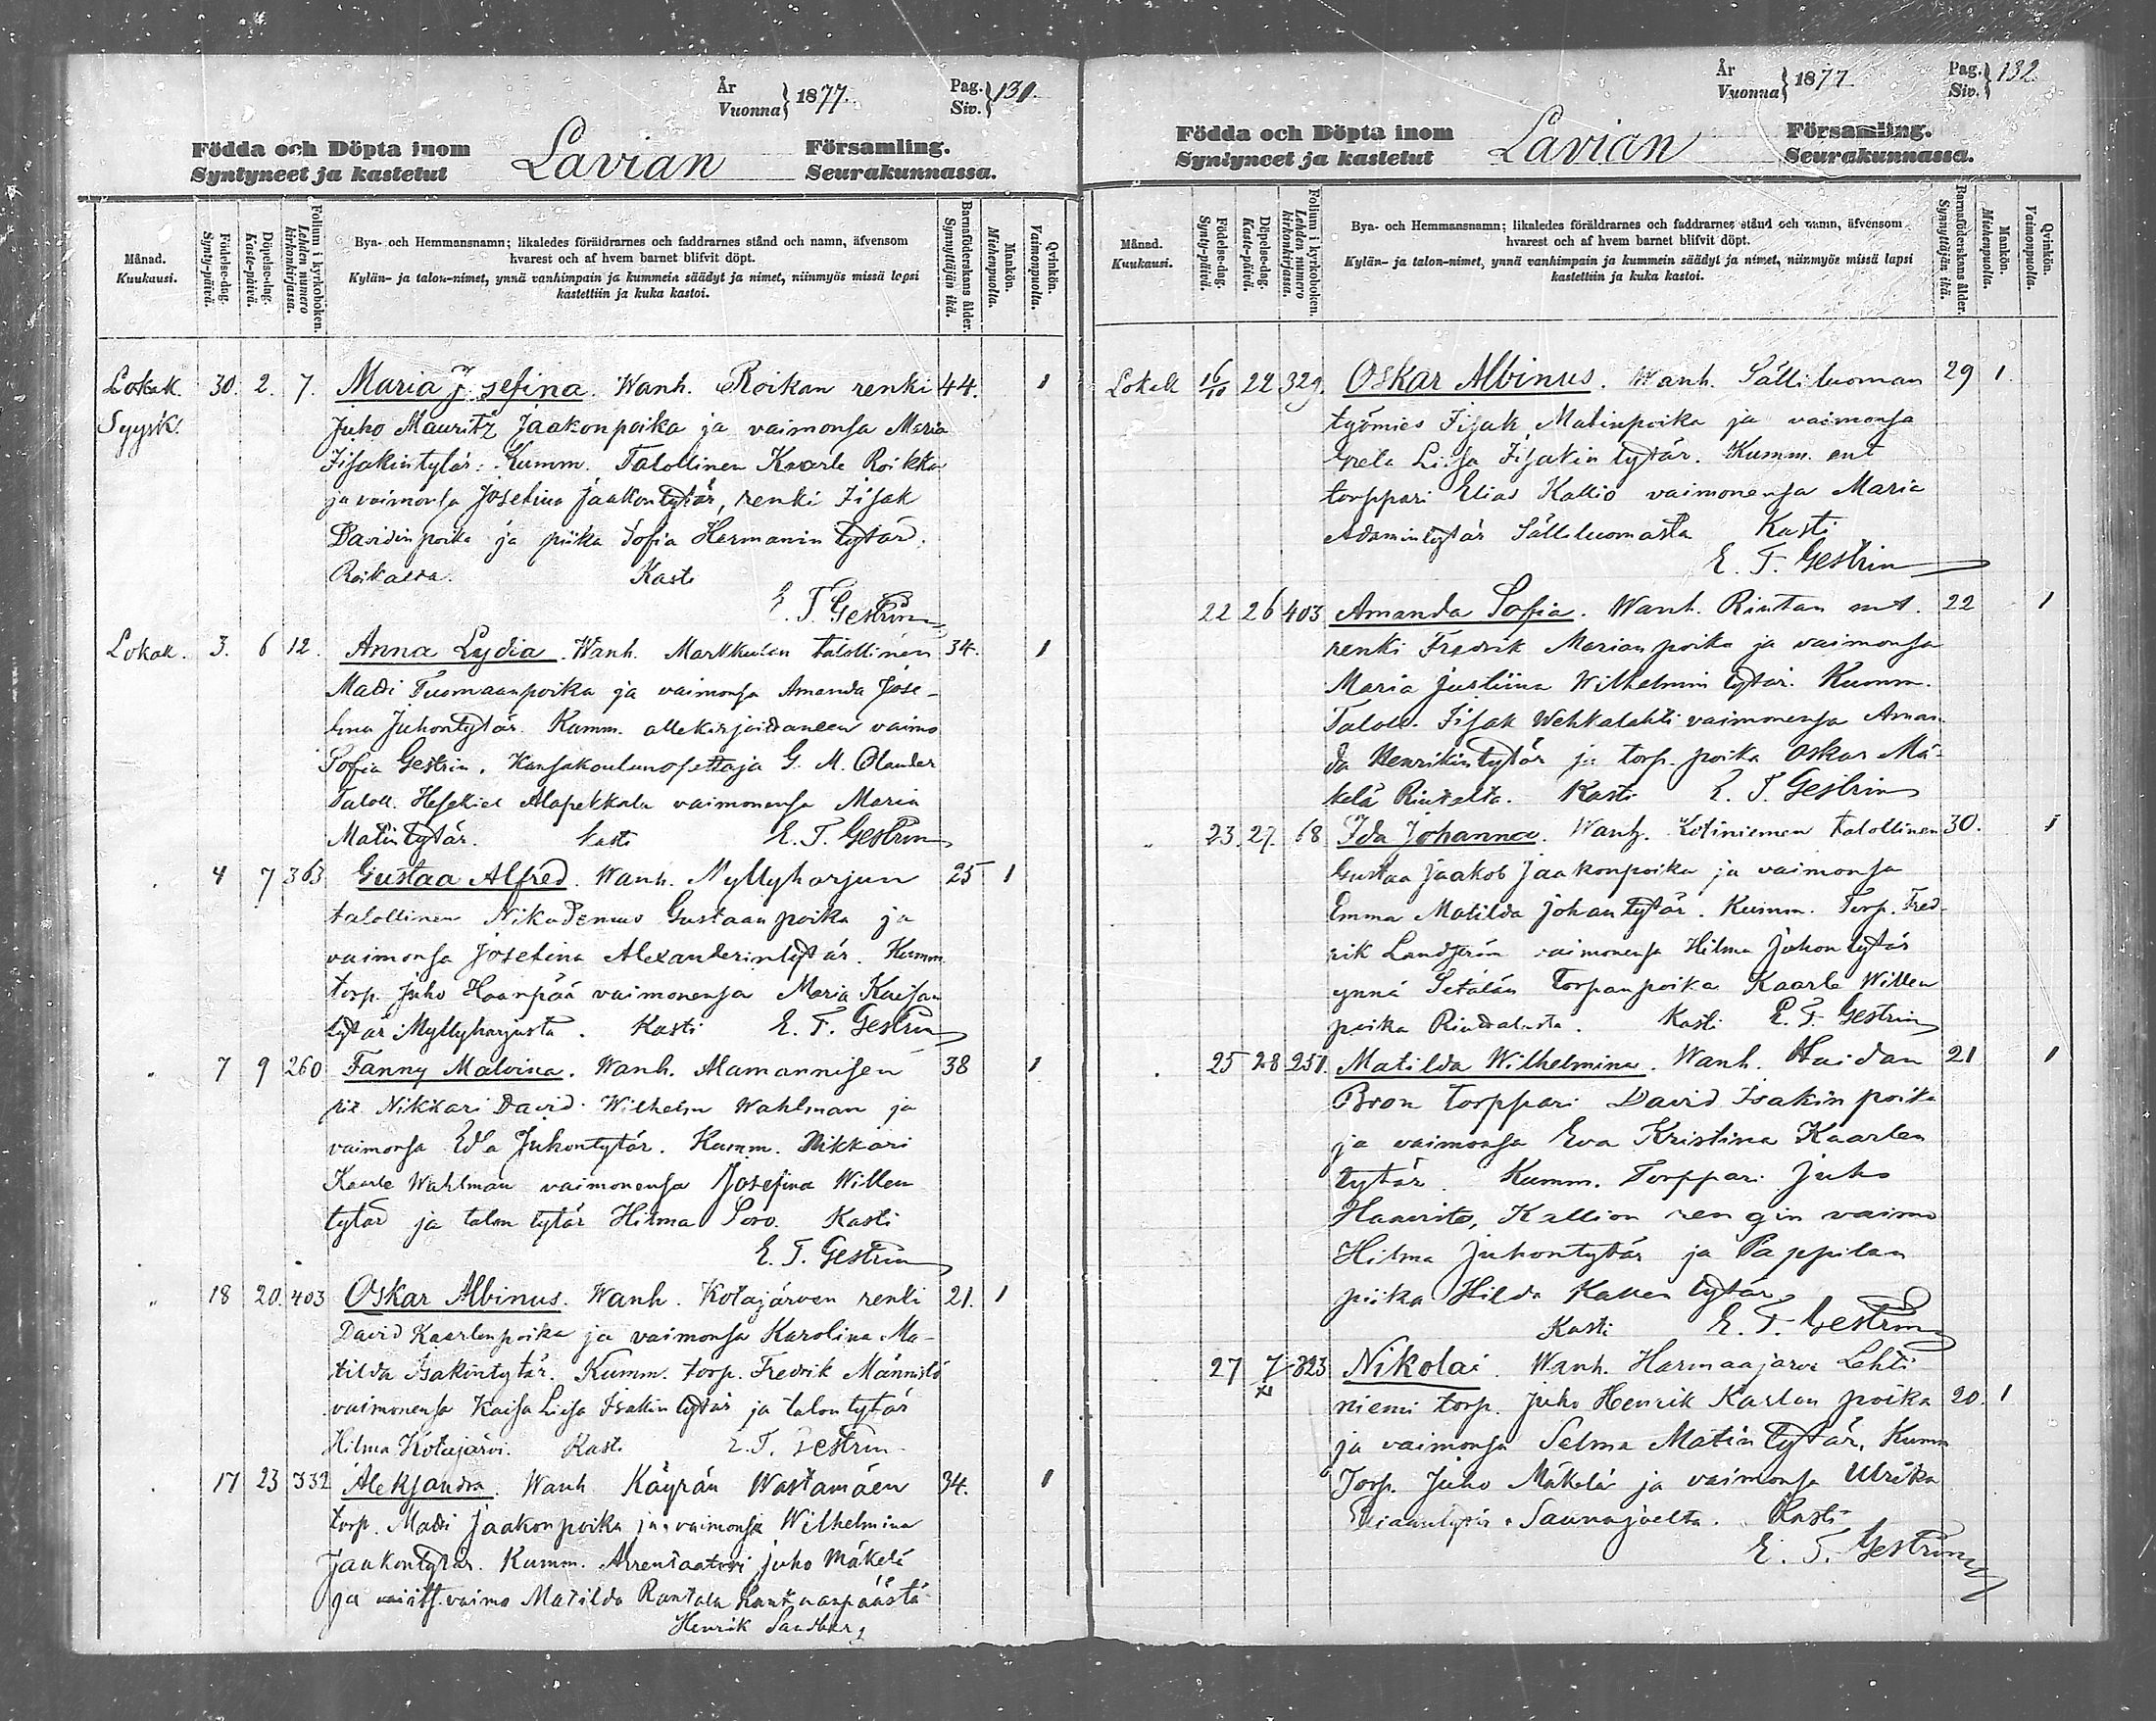 År
Vuonna } 1877.
Pag.
Siv. } 131.
Födda och Döpta inom
Syntyneet ja kastetut
Lavian
Församling.
Seurakunnassa.
Månad.
Kuukausi.
Födelse-dag.
Synty-päivä.
Döpelse-dag.
Kaste-päivä.
Folium i kyrkoboken.
Lehden numero kirkonkirjassa.
Bya- och Hemmansnamn; likaledes föräldrarnes och faddrarnes stånd och namn, äfvensom
hvarest och af hvem barnet blifvit döpt.
Kylän- ja talon-nimet, ynnä vanhimpain ja kummein säädyt ja nimet, niinmyös missä lapsi
kastettiin ja kuka kastoi.
Barnaföderskans ålder.
Synnyttäjän ikä.
Mankön.
Miehenpuolta.
Qvinkön.
Vaimonpuolta.
Lokak. 30. 2. 7. Maria Josefina. Wanh. Roikan renki 44. 1
Syysk. Juho Mauritz Jaakonpoika ja vaimonsa Maria
Iisakintytär. Kumm. Talollinen Kaarle Roikka
ja vaimonsa Josefina Jaakontytär, renki Iisak
Davidinpoika ja piika Sofia Hermanintytär
Roikalta. Kasti
E. T. Gestrin
Lokak. 3. 6 12. Anna Lydia. Wanh. Markkulan talollinen 34. 1
Matti Tuomaanpoika ja vaimonsa Amanda Jose-
fina Juhontytär. Kumm. allekirjoittaneen vaimo
Sofia Gestrin, Kansakoulunopettaja G. M. Olander
Taloll. Hesekiel Alapekkala vaimonensa Maria
Matintytär. Kasti E. T. Gestrin
4 7 363 Gustaa Alfred. Wanh. Myllyharjun 25 1
talollinen Nikodemus Gustaanpoika ja
vaimonsa Josefina Alexanderintytär. Kumm.
torp. Juho Haanpää vaimonensa Maria Kaisan
tytär Myllyharjusta. Kasti E. T. Gestrin
" 7 9 260 Fanny Malvina. Wanh. Alamannisen 38 1
Nikkari David Wilhelm Wahlman ja
vaimonsa Eva Juhontytär. Kumm. Nikkari
Kaarle Wahlman vaimonensa Josefina Willen
tytär ja talon tytär Hilma Soro. Kasti
E. T. Gestrin
" 18 20. 403 Oskar Albinus. Wanh. Kotajärven renki 21. 1
David Kaarlenpoika ja vaimonsa Karolina Ma-
tilda Isakintytär. Kumm. torp. Fredrik Männistö
vaimonensa Kaisa Liisa Isakintytär ja talontytär
Hilma Kotajärvi. Kasti E. T. Gestrin
17 23 332 Aleksandra. Wanh. Käyrän Wastamäen 34. 1
torp. Matti Jaakonpoika ja vaimonsa Wilhelmina
Jaakontytär. Kumm. Arrentaatori Juho Mäkelä
ja vaimo Matilda Rantala
Henrik Sandberg
År
Vuonna } 1877
Pag.
Siv. } 132.
Födda och Döpta inom
Syntyneet ja kastetut
Lavian
Församling.
Seurakunnassa.
Månad.
Kuukausi.
Födelse-dag.
Synty-päivä.
Döpelse-dag.
Kaste-päivä.
Folium i kyrkoboken.
Lehden numero kirkonkirjassa.
Bya- och Hemmansnamn; likaledes föräldrarnes och faddrarnes stånd och namn, äfvensom
hvarest och af hvem barnet blifvit döpt.
Kylän- ja talon-nimet, ynnä vanhimpain ja kummein säädyt ja nimet, niinmyös missä lapsi
kastettiin ja kuka kastoi.
Barnaföderskans ålder.
Synnyttäjän ikä.
Mankön.
Miehenpuolta.
Qvinkön.
Vaimonpuolta.
Lokak 16/10 22 329. Oskar Albinus. Wanh. Sälliluoman 29 1.
työmies Iisak Matinpoika ja vaimonsa
Greta Liisa Iisakin tytär. Kumm. ent
torppari Elias Kallio vaimonensa Maria
Adamintytär Sälliluomasta Kasti
E. T. Gestrin
22 26 403 Amanda Sofia. Wanh. Rintan 22 1
renki Fredrik Marianpoika ja vaimonsa
Maria Justiina Wilhelmin tytär. Kumm.
Taloll. Iisak Wehkalahti vaimonensa Aman-
da Henrikintytär ja torp. poika Oskar Mä-
kelä Kasti E. T. Gestrin
" 23. 27. 68 Ida Johanna. Wanh. Kotiniemen talollinen 30. 1
Gustaa Jaakob Jaakonpoika ja vaimonsa
Emma Matilda Johantytär. Kumm. Torp. Fred-
rik vaimonensa Hilma Juhontytär
ynnä Setälän Torpanpoika Kaarle Willen
poika Kasti E. T. Gestrin
25 28 251. Matilda Wilhelmina. Wanh. Haidan 21 1
torppari David Isakin poika
ja vaimonsa Eva Kristina Kaarlen
tytär. Kumm. Torppari Juho
Haavisto, Kallion rengin vaimo
Hilma Juhontytär ja Pappilan
piika Hilda Kallen tytär
Kasti E. T. Gestrin
27 7/XI 323 Nikolai. Wanh. Harmaajärvi Lehti-
niemi torp. Juho Henrik Karlan poika 20. 1
ja vaimonsa Selma Matin tytär, Kumm
Torp. Juho Mäkelä ja vaimonsa Ulrika
Kasti
E. T. Gestrin